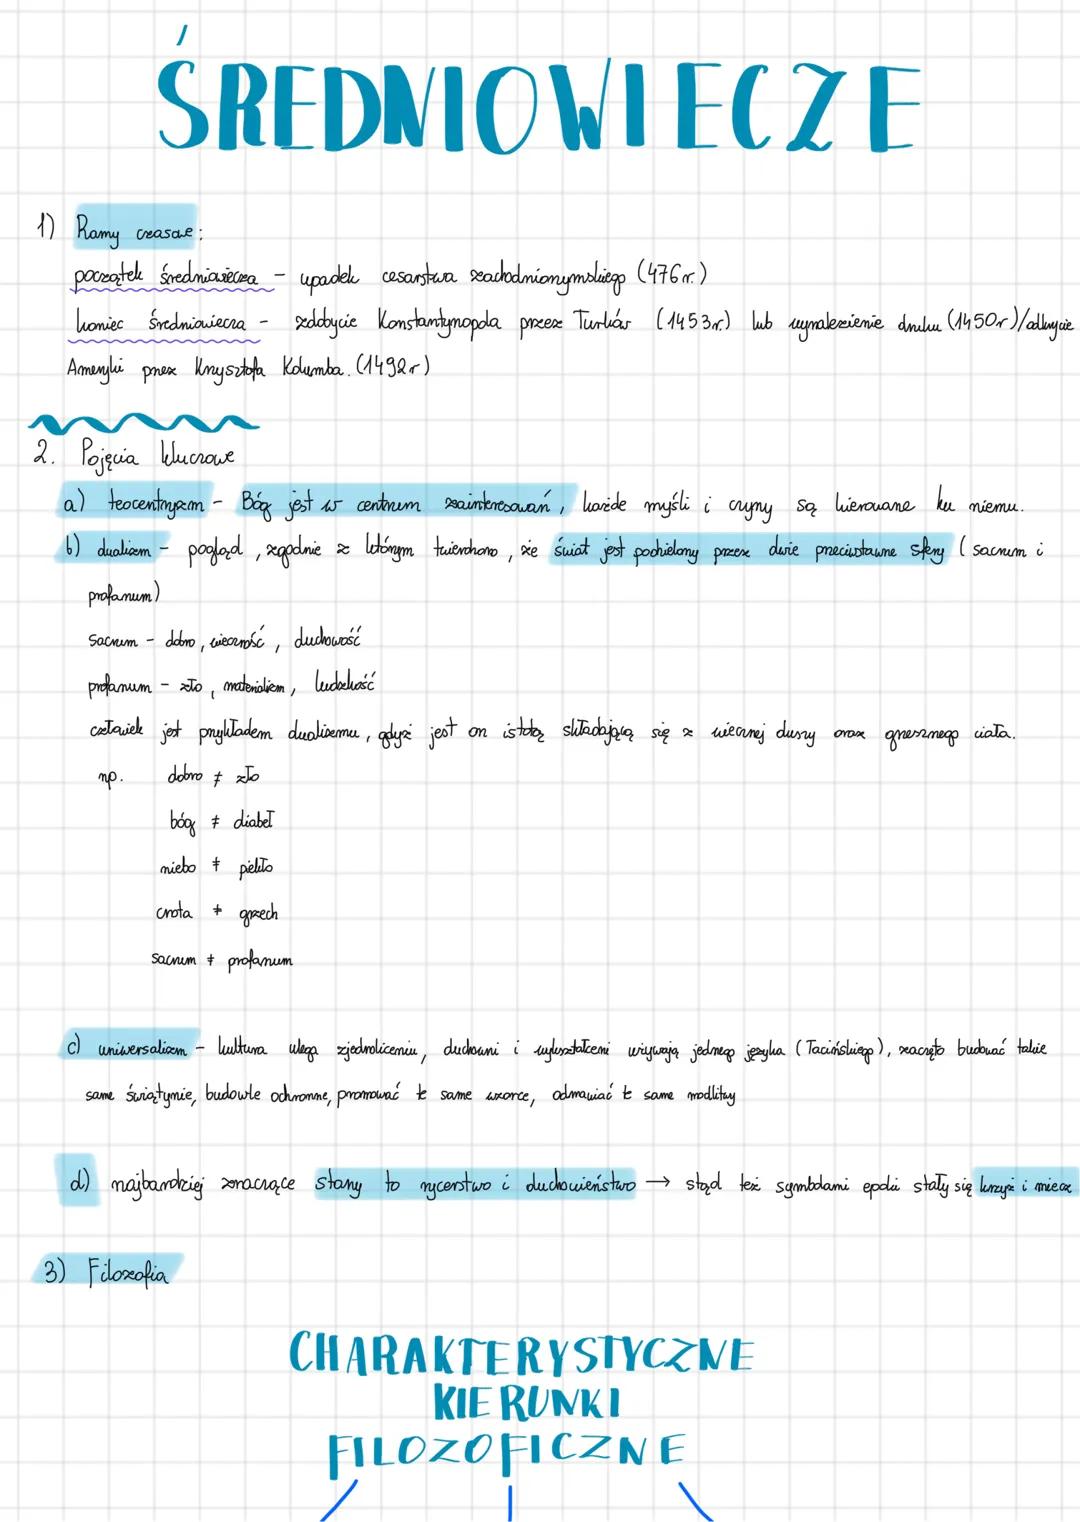 ŚREDNIOWIECZE
1) Ramy czasowe:
początek średniowiecza - upadek cesarstwa zachodniorzymskiego (476r.)
koniec średniowiecza - zdobycie Konstantynopola przez Turków (1453r.) lub wynalezienie druku (1450r)/odkrycie
Ameryki przez Krzysztofa Kolumba. (1492r)
2. Pojęcia kluczowe
a) teocentryzm - Bóg jest w centrum zainteresowań, każde myśli i czyny są kierowane ku niemu.
b) dualizm - pogląd, zgodnie z którym twierdzono, że świat jest podzielony przez dwie przeciwstawne sfery (sacrum i
profanum)
sacrum - dobro, wieczność, duchowość
profanum - zło, materializm, ludzkość
człowiek jest przykładem dualizmu, gdyż jest on istotą składającą się z wiecznej duszy oraz grzesznego ciała.
np. dobro ≠ zło
bóg ≠ diabeł
niebo ≠ piekło
cnota ≠ grzech
sacrum ≠ profanum
c) uniwersalizm - kultura ulega zjednoliceniu, duchowni i wykształceni używają jednego języka (łacińskiego), zaczęto budować takie
same świątynie, budowle ochronne, promować te same wzorce, odmawiać te same modlitwy
d) najbardziej znaczące stany to rycerstwo i duchowieństwo → stąd też symbolami epoki stały się krzyż i miecz
3) Filozofia
CHARAKTERYSTYCZNE
KIERUNKI
FILOZOFICZNE